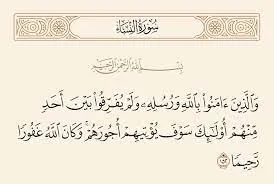 سُورَةُ النِّسَاءِ
بِسْمِ اللَّهِ الرَّحْمَٰنِ الرَّحِيمِ
وَالَّذِينَ ءَامَنُوا۟ بِاللَّهِ وَرُسُلِهِۦ وَلَمْ يُفَرِّقُوا۟ بَيْنَ أَحَدٍ
مِّنْهُمْ أُو۟لَٰٓئِكَ سَوْفَ يُؤْتِيهِمْ أُجُورَهُمْ ۗ وَكَانَ اللَّهُ غَفُورًا
رَّحِيمًا ١٥٢